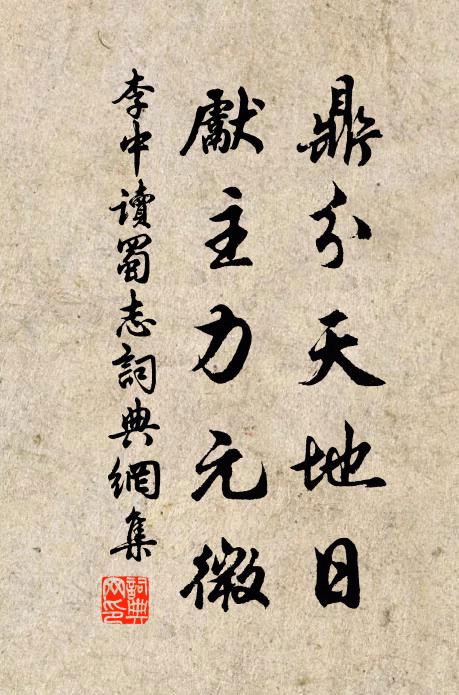 鼎分天地日
獻主力元微
李中讀蜀志詞典網集
詞典網印